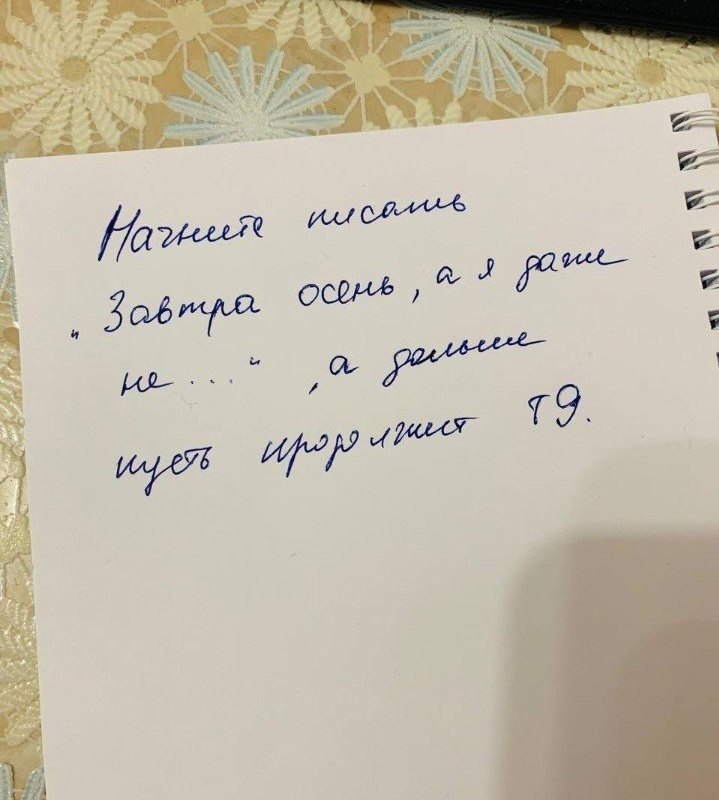 Начните писать
"Завтра осень, а я даже
не ..." , а дальше
пусть продолжит Т9.